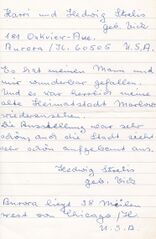 Harri und Hedwig Strelis
geb. Dick
181 Oakview-Ave.
Aurora /Jl. 60505 U.S.A.
Es hat meinen Mann und
mir wunderbar gefallen.
Und es war herrlich meine
alte Heimatstadt
wiederzusehen.
Die Ausstellung war sehr
schön, auch die Stadt sehr
schön sehr aufgebaut aus.
Hedwig Strelis
geb. Dick
Aurora liegt 38 Meilen
west von Chicago /Jl
U.S.A